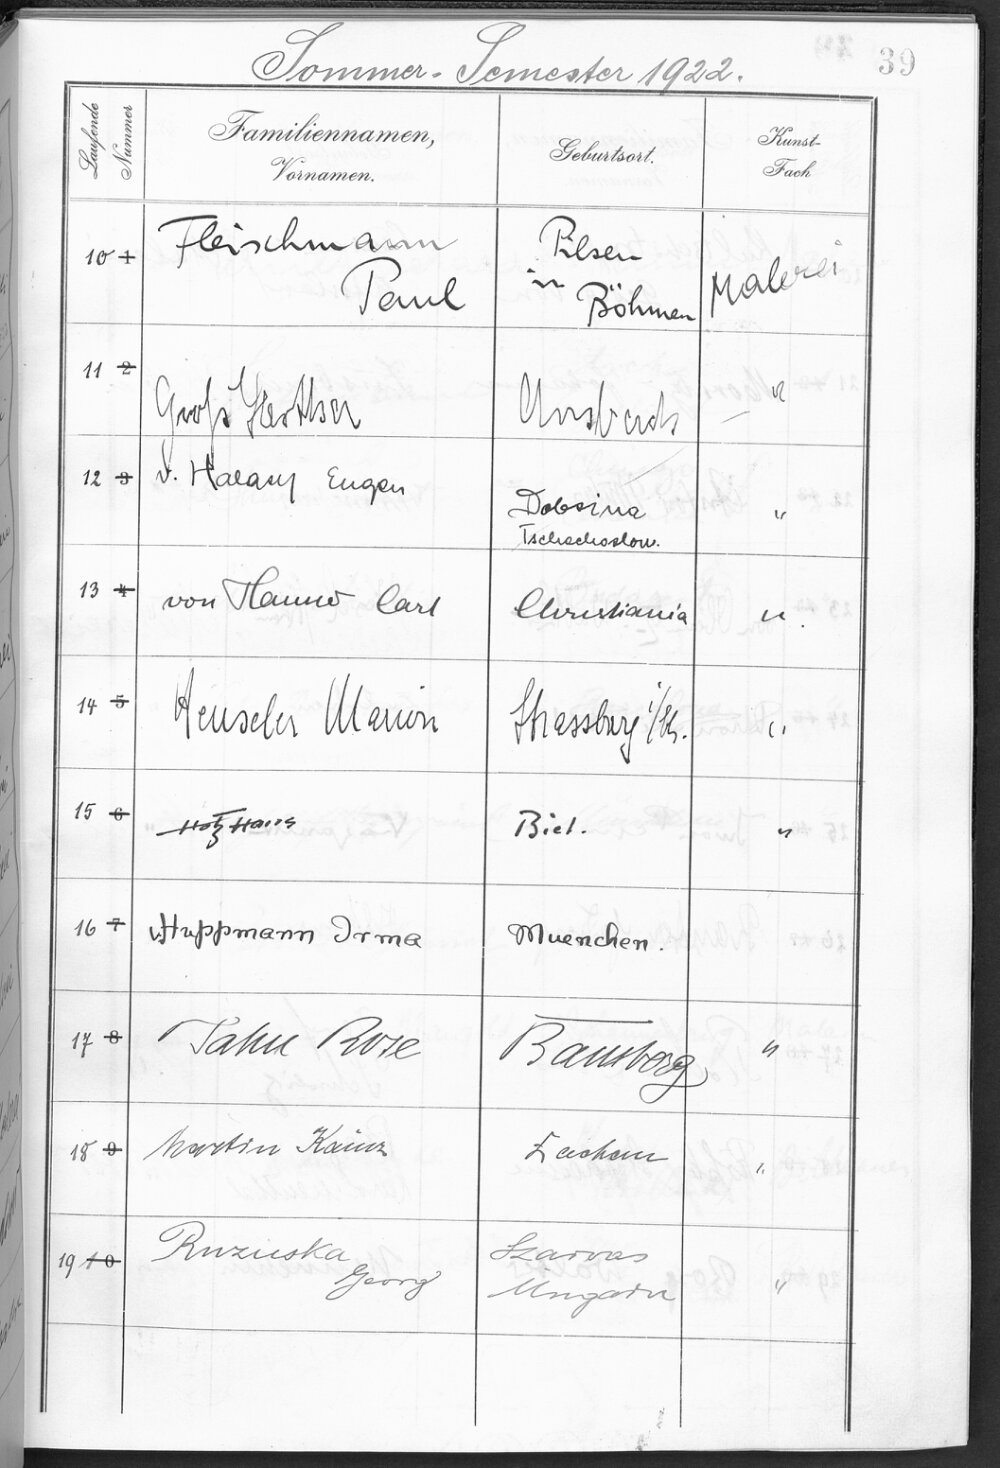 Sommer-Semester 1922.
39
Laufende Nummer
Familiennamen,
Vornamen.
Geburtsort.
Kunst-
Fach
10 1 Fleischmann
Paul
Pilsen
in
Böhmen
Malerei
11 2 Groß Ansbach "
12 3 v. Halasy Eugen
Dobsina "
Tschechoslow.
13 4 von Hanno Carl Christiania "
14 5 Heuseler Marion Strassburg i/Els. "
15 6 Hotz Hans Biel. "
16 7 Huppmann Irma Muenchen.
17 8 Jahn Rose Bamberg "
18 9 Martin Kainz "
19 10 Ruzicska
Georg
Szarvas
Ungarn "